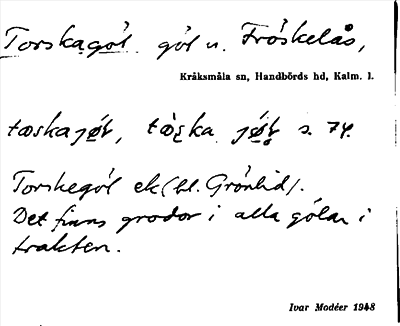 Torskagól. gól n. Fróskelås,
Kråksmåla sn, Handbörds hd, Kalm. l.
tɷskajøt, tɷ̀ska jøt s. 74.
Torskegól ek (bl. Grónlid).
Det finns grodor i alla gólar i
trakten.
Ivar Modéer 1948